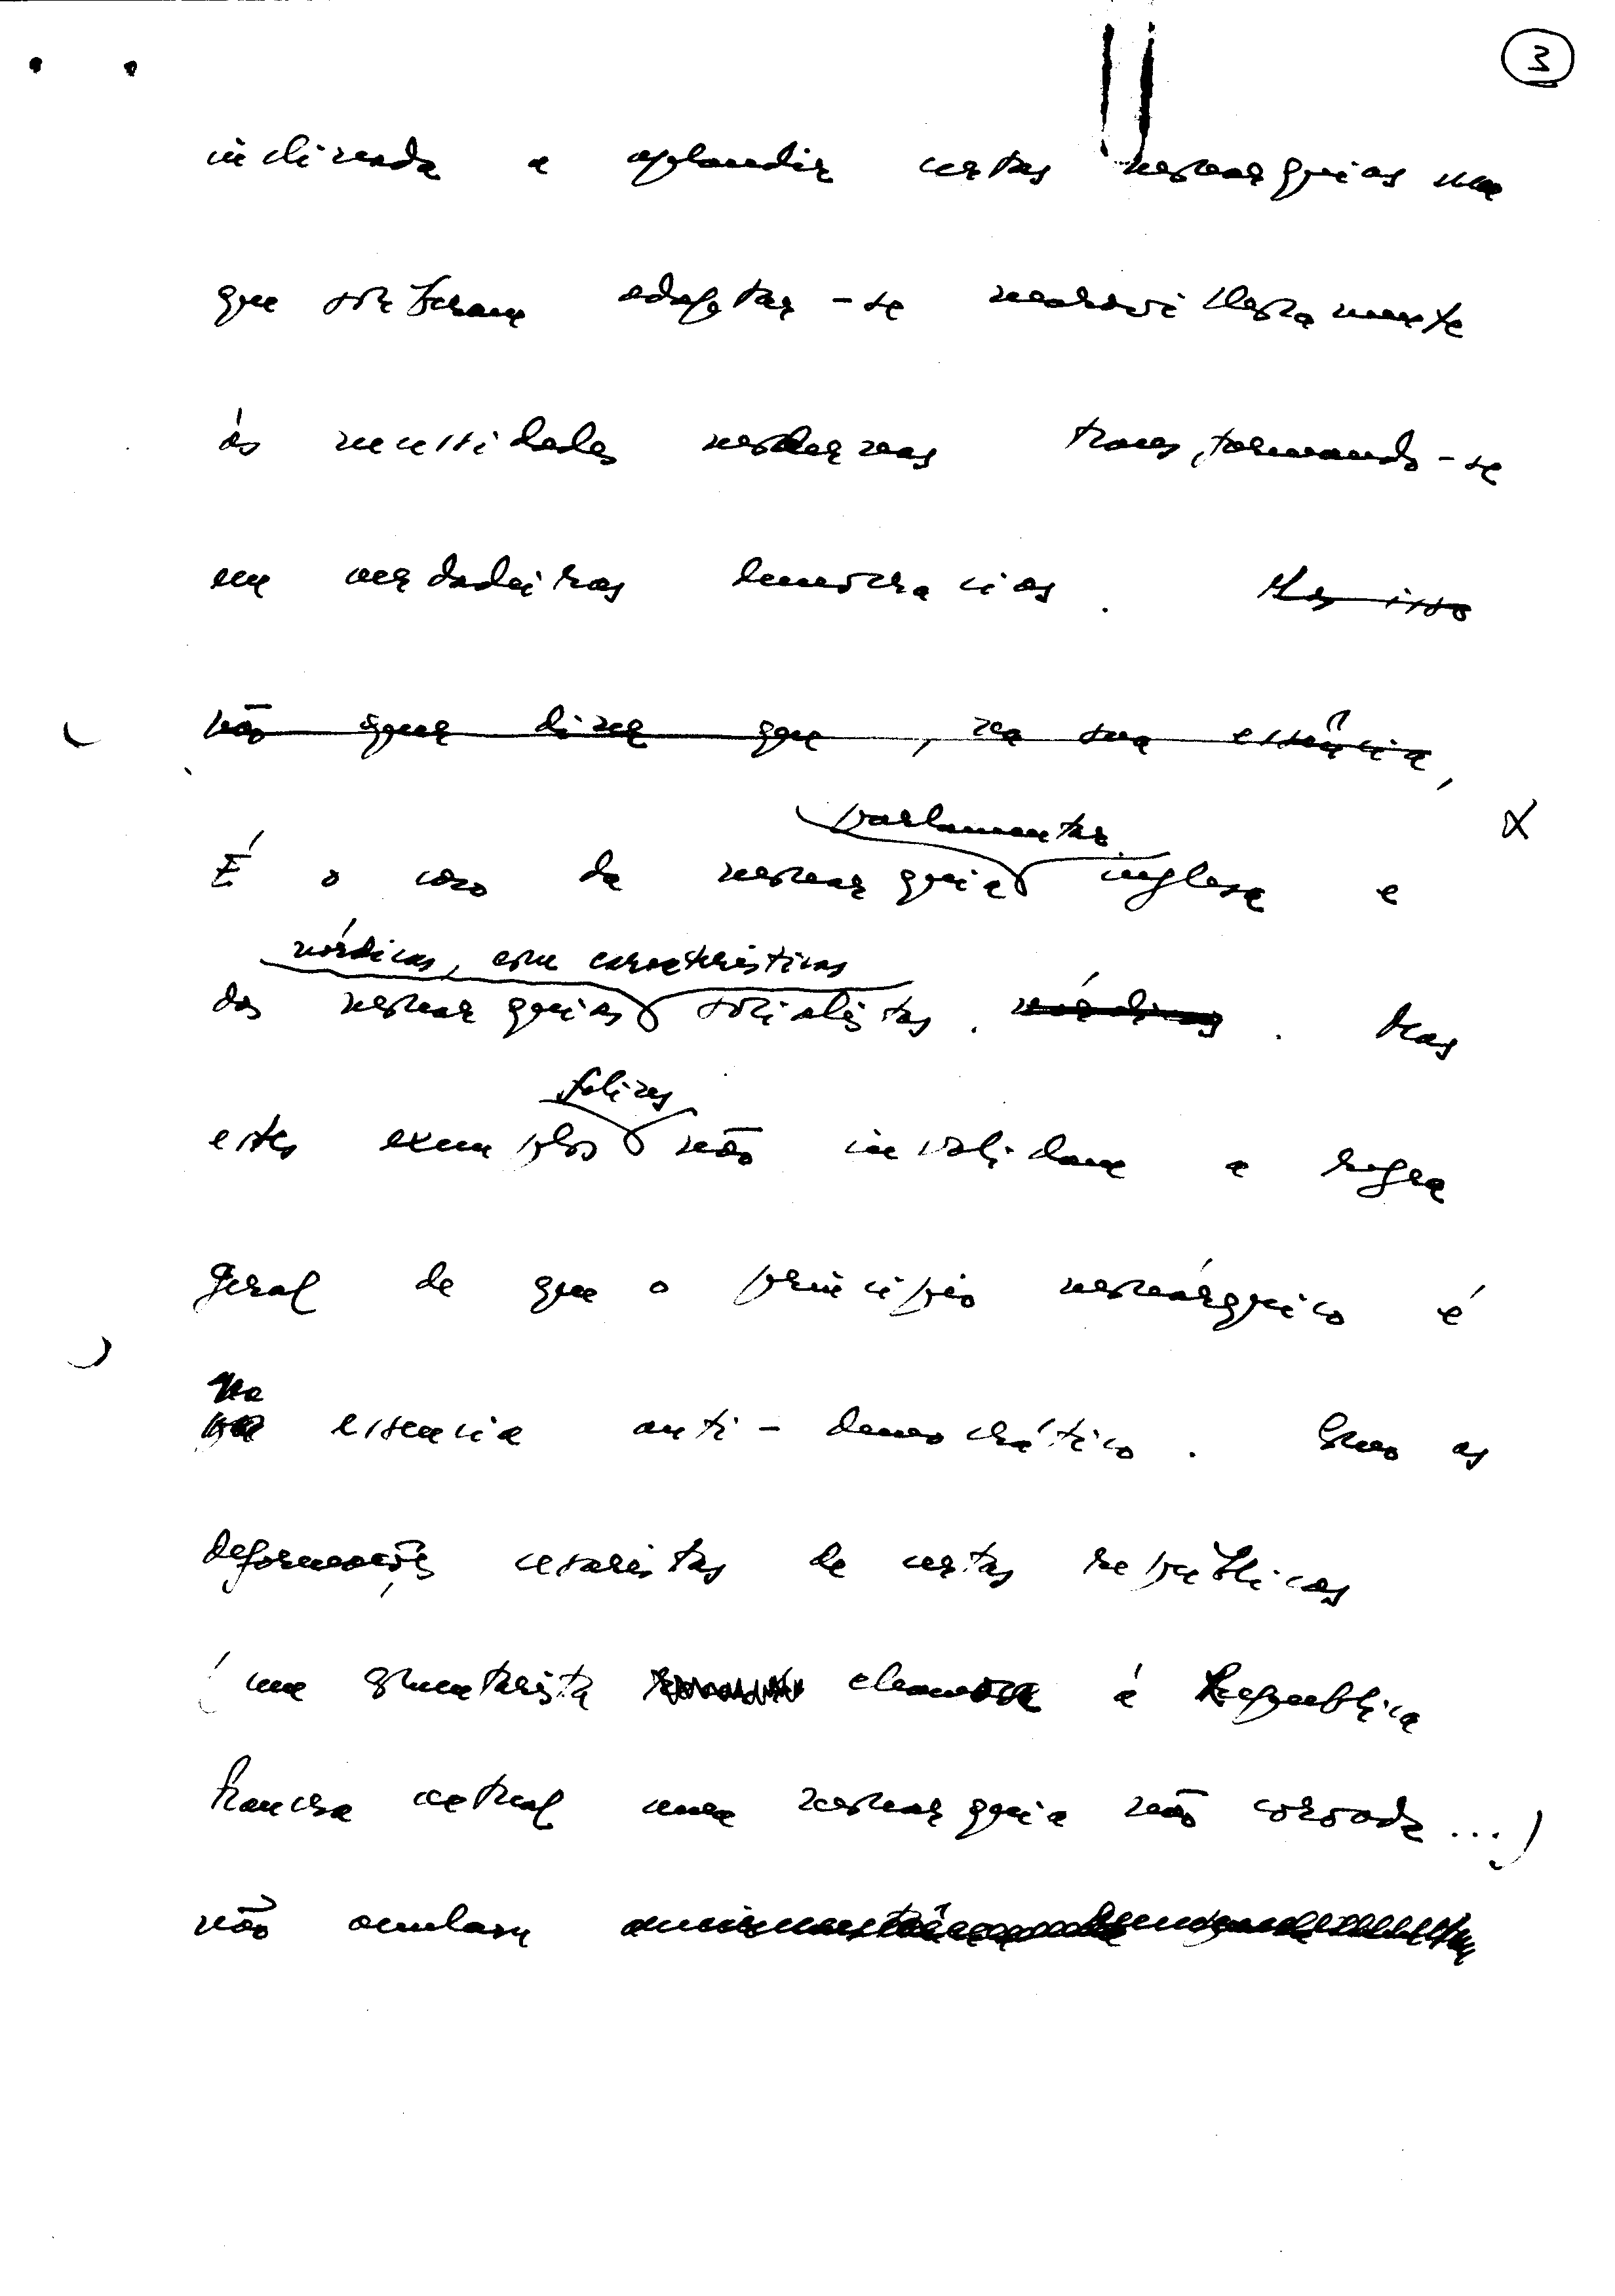 3
inclinada a aplaudir certas monarquias em
que souberam adaptar-se maravilhosamente
às necessidades modernas transformando-se
em verdadeiras democracias. Mas isso
não quer dizer que, na sua essência,
parlamentar
É o caso da monarquia inglesa e
nórdicas, com características
das monarquias socialistas. nórdicas. Mas
felizes
estes exemplos não invalidam a regra
geral de que o princípio monárquico é
na
essencia anti-democrático. Como as
deformações cesaristas de certas repúblicas
(um humorista chamou à República
francesa actual uma monarquia não coroada...)
não anulam